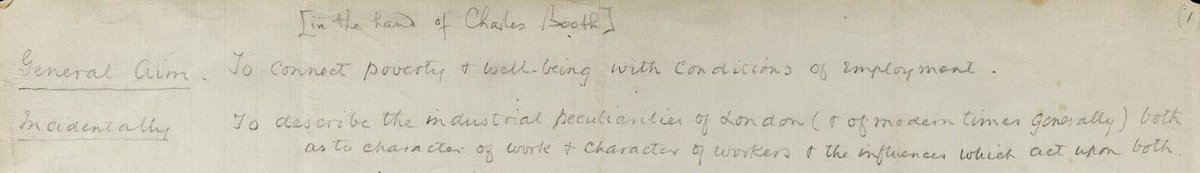 [in the hand of Charles Booth]
(1
General Aim. To connect poverty & well-being with conditions of employment.
Incidentally To describe the industrial peculiarities of London (& of modern times generally) both
as to character of work & character of workers & the influences which act upon both.